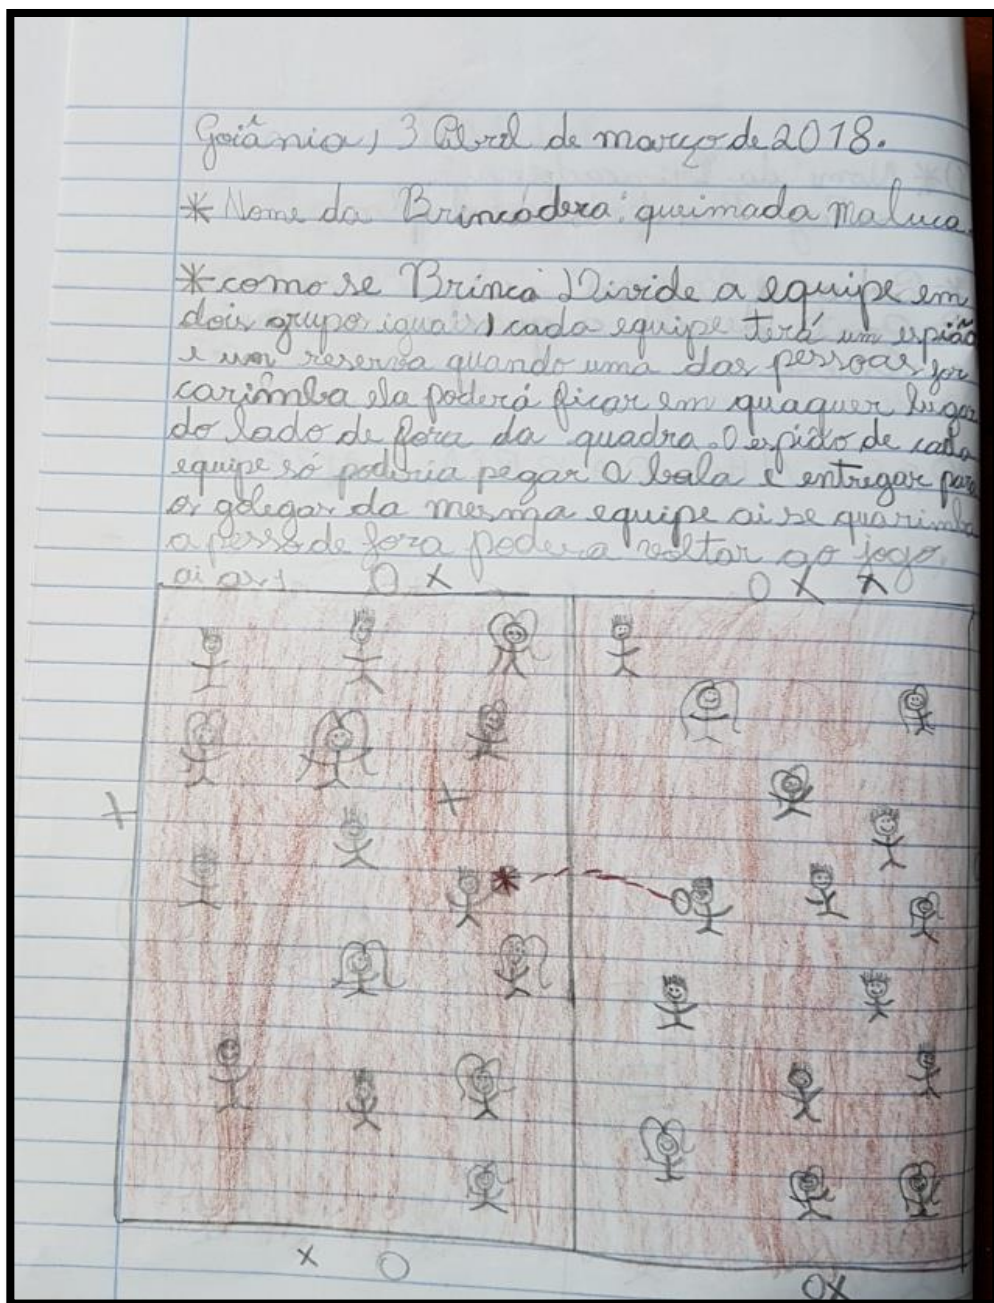 Goiânia, 3 Abril de março de 2018.
* Nome da Brincadera: queimada maluca.
* como se Brinca Divide a equipe em
dois grupo iguais, cada equipe terá um espião
e um reserva quando uma das pessoas for
carimba ela poderá ficar em quaquer lugar
do lado de fora da quadra. O espião de cada
equipe só poderia pegar a bala e entregar para
os golegar da mesma equipe ai se quarimba
a pessõ de fora podera voltar ao jogo.
O X O X X
X X
X O OX